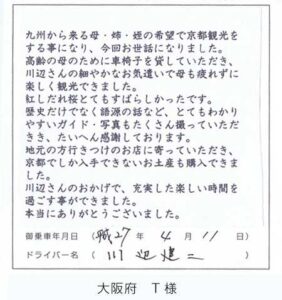 九州から来る母・姉・姪の希望で京都観光を
する事になり、今回お世話になりました。
高齢の母のために車椅子を貸していただき、
川辺さんの細やかなお気遣いで母も疲れずに
楽しく観光できました。
紅しだれ桜とてもすばらしかったです。
歴史だけでなく語源の話など、とてもわかり
やすいガイド・写真もたくさん撮っていただ
きき、たいへん感謝しております。
地元の方行きつけのお店に寄っていただき、
京都でしか入手できないお土産も購入できま
した。
川辺さんのおかげで、充実した楽しい時間を
過ごす事ができました。
本当にありがとうございました。
御乗車年月日(平成27年 4月 11日)
ドライバー名( 川辺健二 )
大阪府 T様